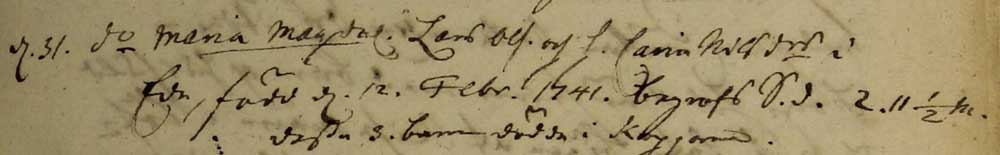 d. 31. do Maria Magdal. Lars Ols. och h. Carin Nilsdrs i
Edn, född d. 12. Febr. 1741. begrofs S. d. 2. 11 1/2 m.
dessa 3. barn dödde i Kopporna.